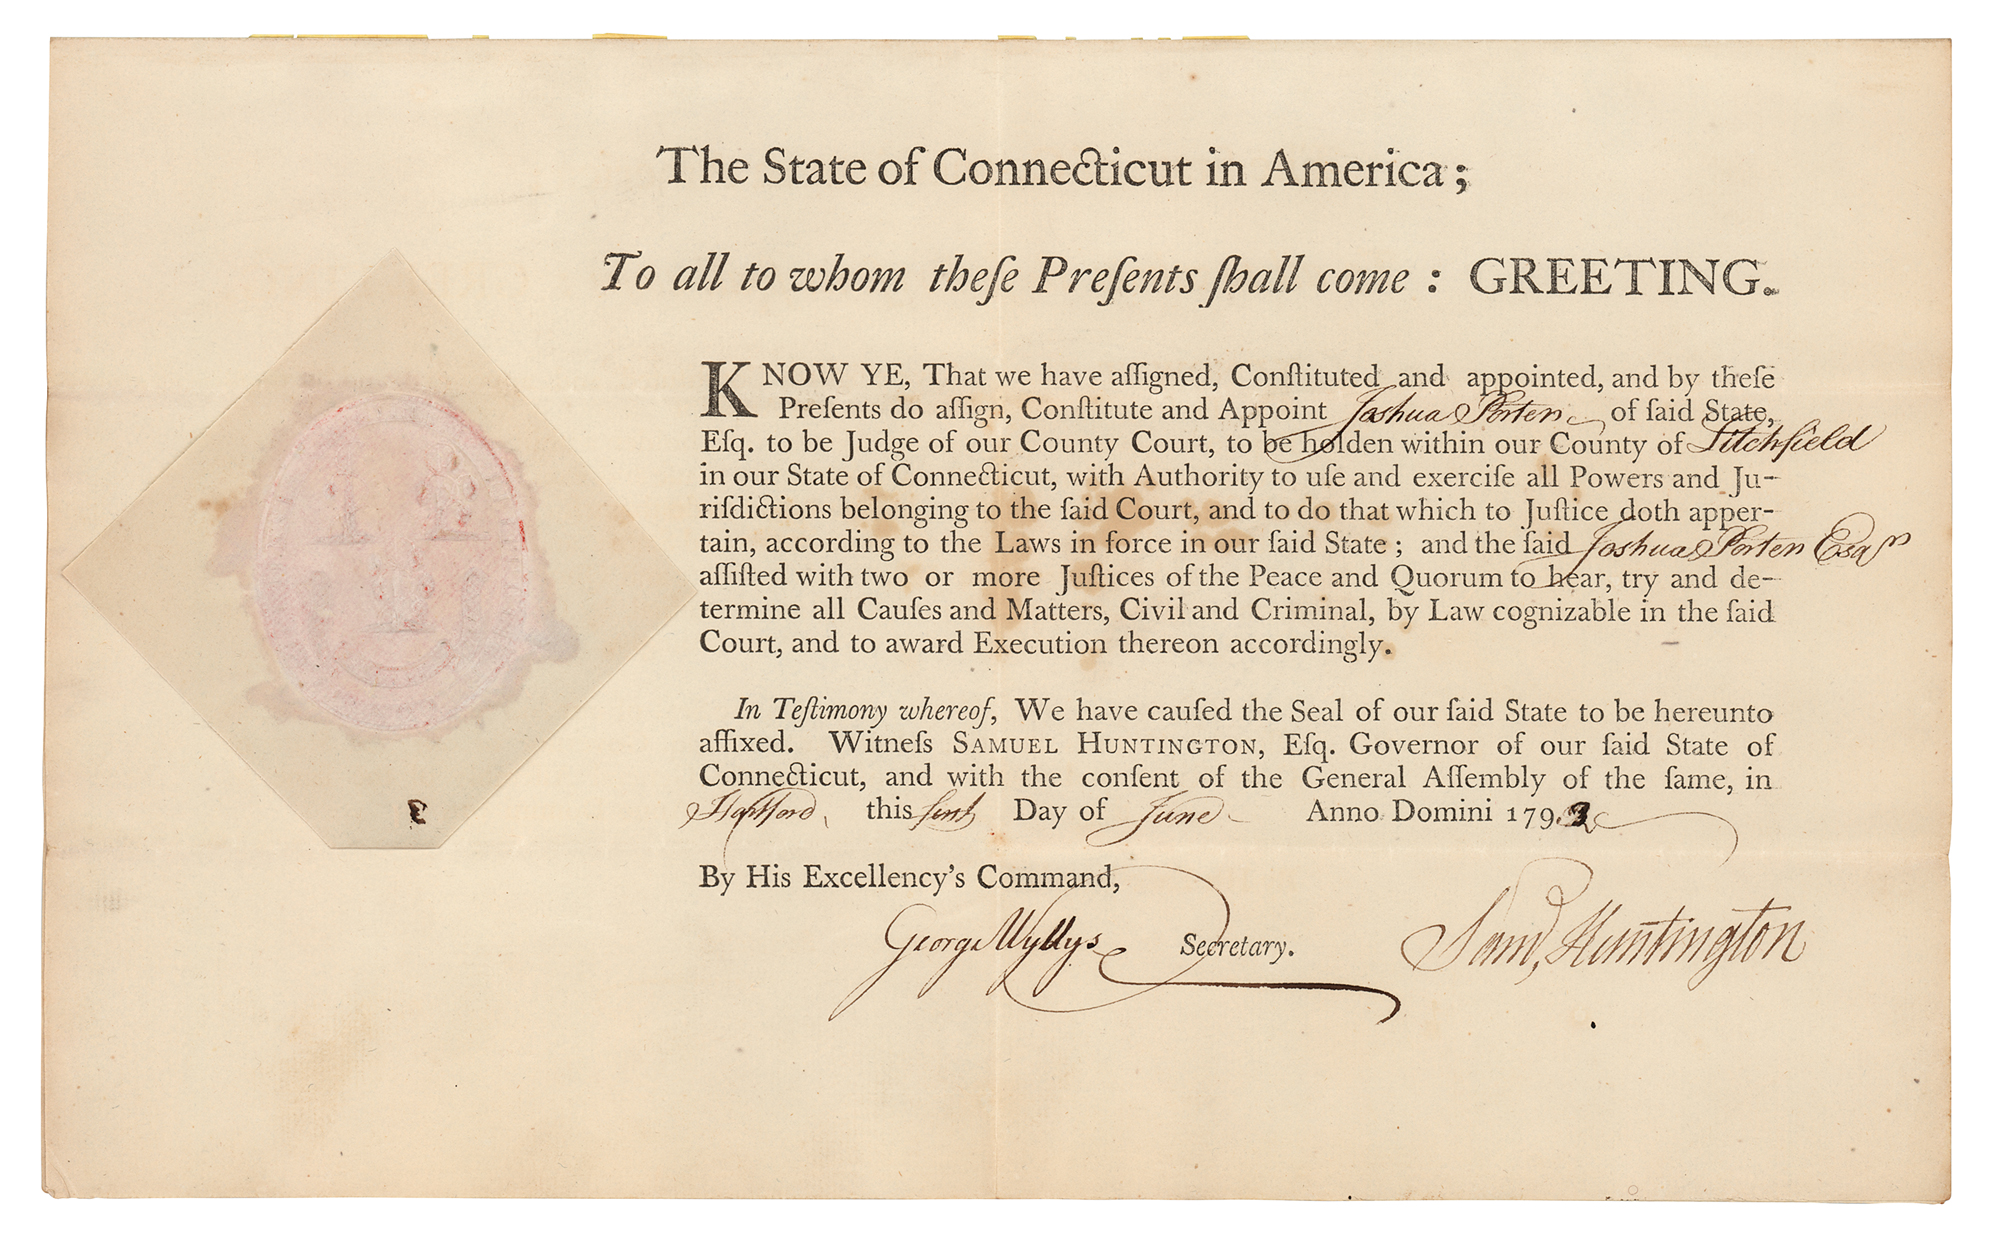 The State of Connecticut in America;
To all to whom theſe Preſents ſhall come: GREETING.
KNOW YE, That we have aſſigned, Conſtituted and appointed, and by theſe
Preſents do aſſign, Conſtitute and Appoint Joshua Porter of ſaid State,
Eſq. to be Judge of our County Court, to be holden within our County of Litchfield
in our State of Connecticut, with Authority to uſe and exerciſe all Powers and Ju-
riſdictions belonging to the ſaid Court, and to do that which to Juſtice doth apper-
tain, according to the Laws in force in our ſaid State; and the ſaid Joshua Porter Esqr
aſſiſted with two or more Juſtices of the Peace and Quorum to hear, try and de-
termine all Cauſes and Matters, Civil and Criminal, by Law cognizable in the ſaid
Court, and to award Execution thereon accordingly.
In Teſtimony whereof, We have cauſed the Seal of our ſaid State to be hereunto
affixed. Witneſs SAMUEL HUNTINGTON, Eſq. Governor of our ſaid State of
Connecticut, and with the conſent of the General Aſſembly of the ſame, in
Hartford, this first Day of June Anno Domini 1793
By His Excellency's Command,
George Wyllys Secretary.
Saml, Huntington